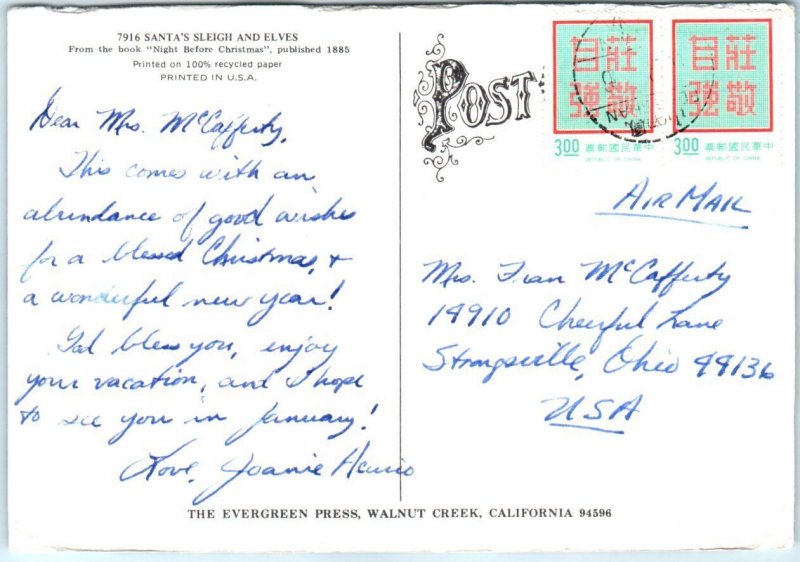 7916 SANTA'S SLEIGH AND ELVES
From the book "Night Before Christmas", published 1885
Printed on 100% recycled paper
PRINTED IN U.S.A.
Dear Mrs. McCafferty,
This comes with an
abundance of good wishes
for a blessed Christmas, &
a wonderful new year!
God bless you, enjoy
your vacation, and I hope
to see you in January!
Love, Joanie
POST
莊敬
自強
3.00
票郵國民華中
REPUBLIC OF CHINA
莊敬
自強
3.00
票郵國民華中
REPUBLIC OF CHINA
AIR MAIL
Mrs. Fran McCafferty
14910 Cheerful Lane
Strongsville, Ohio 44136
USA
THE EVERGREEN PRESS, WALNUT CREEK, CALIFORNIA 94596